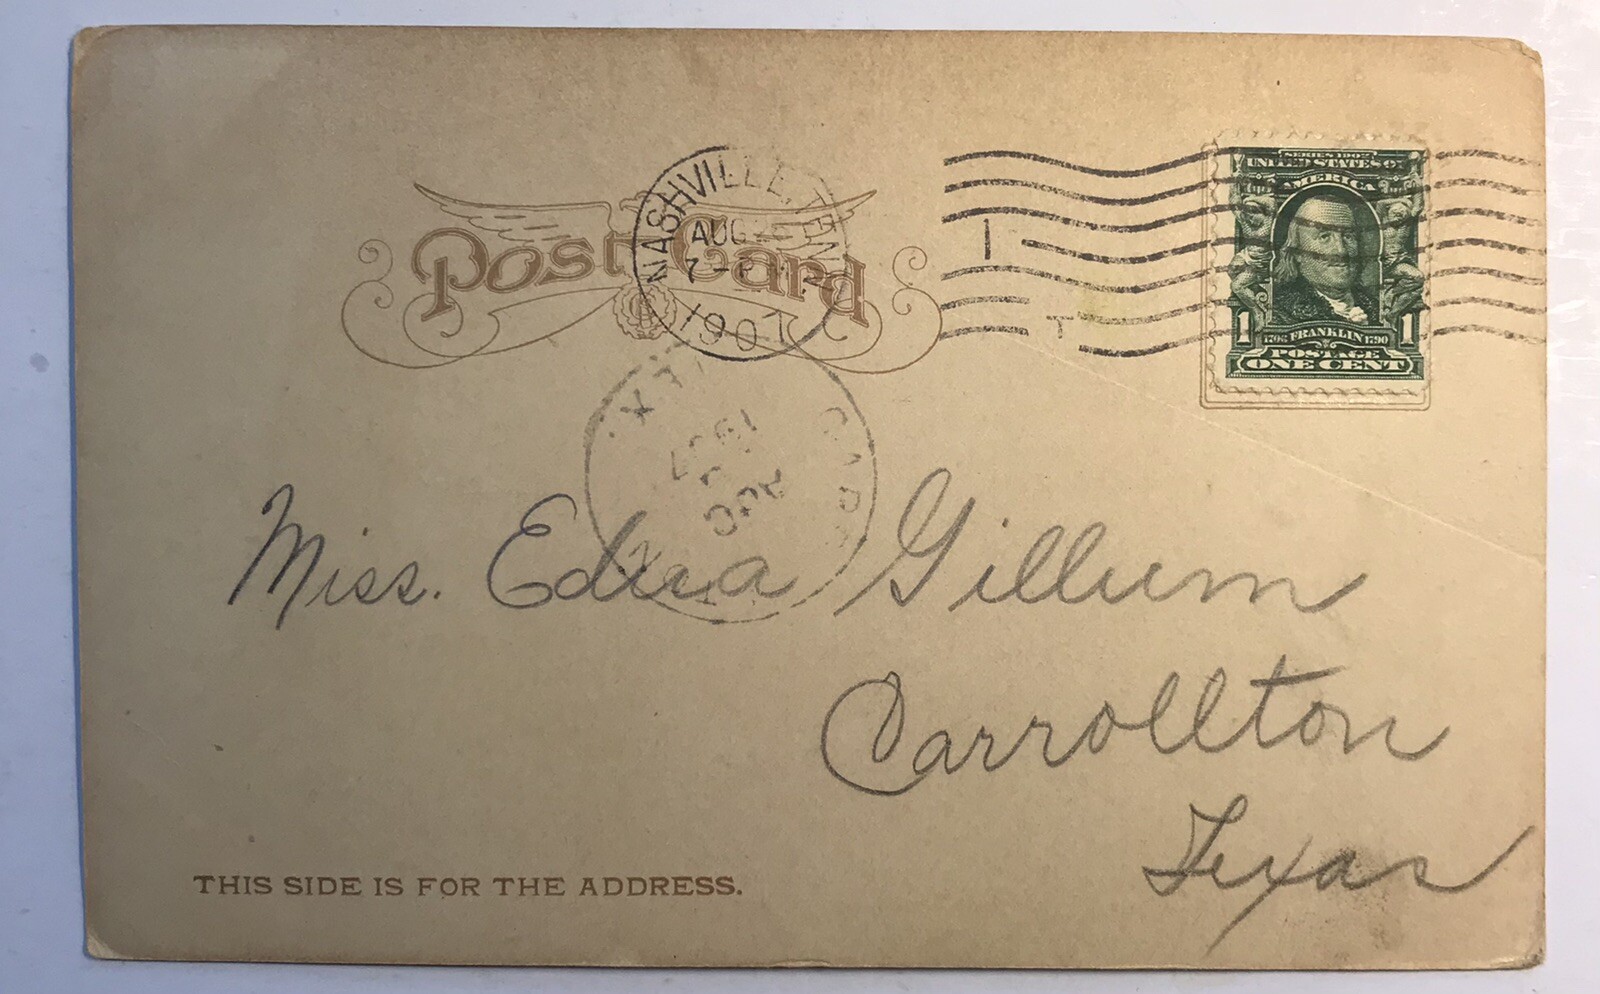 Post Card
NASHVILLE, TENN.
AUG
7-
1907
SERIES 1902
UNITED STATES OF
AMERICA
1 1708 FRANKLIN 1790 1
POSTAGE
ONE CENT
TEX.
1907
Miss. Edna Gillum
Carrollton
Texas
THIS SIDE IS FOR THE ADDRESS.